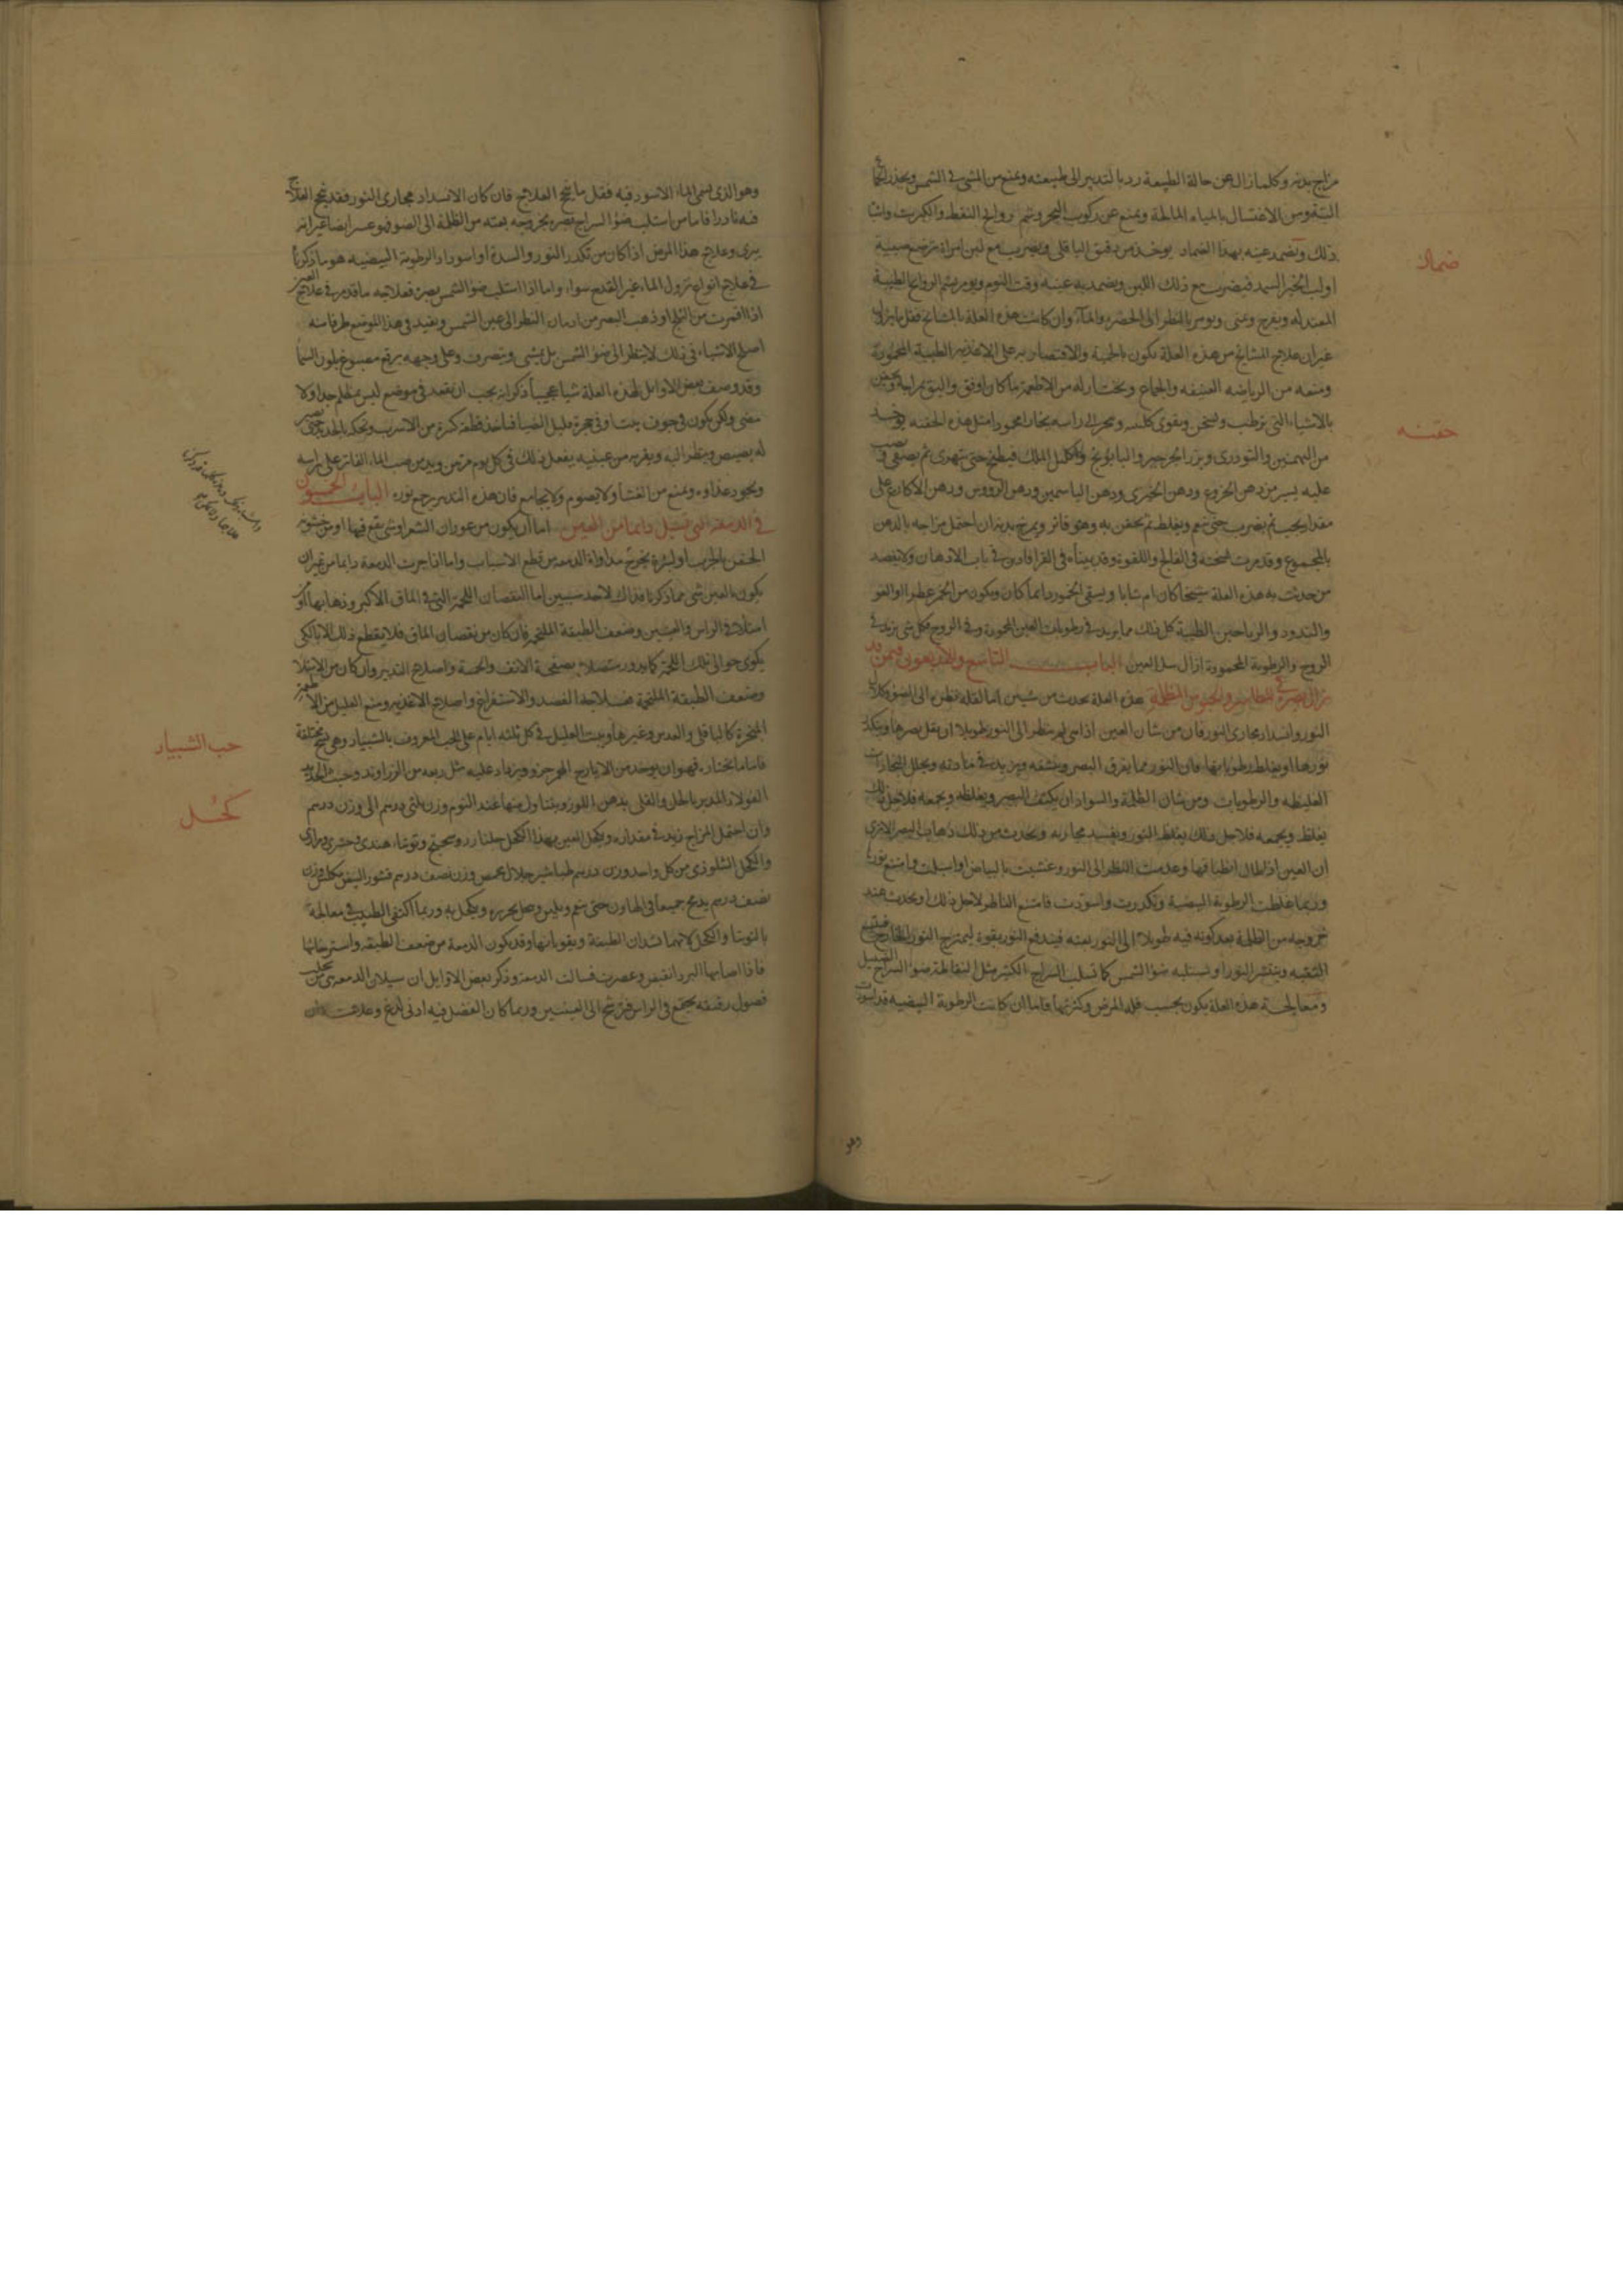 مزاج بدنه وكلما زال عن حالة الطبيعة رد بالتدبير الى طبيعته ويمنع من المشى فى الشمس ويحذر
البتة ومن الاغتسال بالمياه المالحة ويمنع عن ركوب البحر وشم روايح النفط والكبريت واشباه
ذلك ويضمد عينه بهذا الضماد يوخذ من دقيق الباقلى ويضرب مع لبن امراة ترضع صبية
ضماد
او لب الخبز السميد فيضرب مع ذلك اللبن ويضمد به عينه وقت النوم ويومر بشم الروايح الطيبة
المعتدلة ويفرح ويومر بالنظر الى الخضرة والماء وان كانت هذه العلة بالمشايخ فقل ما يزول
غير ان علاج المشايخ من هذه العلة يكون بالحمية والاقتصار به على الاغذية الطيبة المحمودة
ومنعه من الرياضه العنيفه والجماع ويختار له من الاطعمة ما كان اوفق واليق بمزاجه ويحقن
بالاشياء التى ترطب وتسخن وتقوى كليته وتجر الى راسه بخارا محمودا مثل هذه الحقنه يوخذ
حقنه
من البهمنين والتودرى وبزر الجرجير والبابونج واكليل الملك فيطبخ حتى يتهرى ثم يصفى ويصب
عليه يسير من دهن الخروع ودهن الخيرى ودهن الياسمين ودهن الرووس ودهن الاكارع على
مقدار يجب ثم يضرب حتى ينعم ويغلظ ثم يحقن به وهو فاتر ويمرخ بدنه ان احتمل مزاجه بالدهن
المجموع وقد مرت نسخته فى الفالج واللقوة وقد بيناه فى القرافادين فى باب الادهان ولا يفصد
من حدثت به هذه العلة شيخا كان ام شابا ويسقى الخمور دايما كان ويكون من الخمر عطرا
والندود والرياحين الطيبة كل ذلك مما يزيد فى رطوبات العين المحمودة وفى الروح فكل شى يزيد فى
الروح والرطوبة المحمودة ازال سل العين الباب التاسع والاربعون فيمن قد
نزل بصره فى المطامير والحبوس المظلمة هذه العلة تحدث من شيئين اما لقلة نظره الى الضو
النور وانسداد مجارى النور فان من شان العين اذا هى لم تنظر الى النور طويلا ان يقل بصرها ويتكدر
نورها او يغلظ رطوباتها فان النور مما يفرق البصر وينشفه ويزيد فى مادته ويحلل البخارات
الغليظه والرطوبات ومن شان الظلمة والسواد ان يكثف البصر ويغلظه ويجمعه فلاجل ذلك
يغلظ ويجمعه فلاجل ذلك يغلظ النور ويفسد مجاريه ويحدث من ذلك ذهاب البصر الا ترى
ان العين اذا طال انطباقها وعدمت النظر الى النور وغشيت بالبياض او اسبلت وامتنع نورها
وربما غلظت الرطوبة البيضية وتكدرت واسودت فامتنع الناظر لاجل ذلك او يحدث عند
خروجه من الظلمة بعد كونه فيه طويلا الى النور بغته فيندفع النور بقوة ليمتزج النور الخارج فيتسع
الثقبه وينتشر النور او تستلبه ضوا الشمس كما تسلب السراج الكثير مثل النفاطة ضوا السراج الضئيل
ومعالجة هذه العلة يكون بحسب قلة المرض وكثرتها فاما ان كانت الرطوبة البيضيه قد اسودت
وهو
وهو الذى يسمى الماء الاسود فيه فقل ما ينجح العلاج فان كان الانسداد مجارى النور فقد ينجح العلاج
فيه نادرا فاما من استلب ضوا السراج بصره بخروجه بغته من الظلمة الى الضو فهو عسر ايضا غير انه
يبرى وعلاج هذا المرض اذا كان من تكدر النور والسدة او اسوداد الرطوبة البيضيه هو ما ذكرنا
فى علاج انواع نزول الماء غير القدح سواء واما اذا استلب ضوا الشمس بصره فعلاجه ما قد مر فى علاج العين
اذا اقمرت من الثلج او ذهب البصر من ادمان النظر الى عين الشمس ونعيد فى هذا الموضع طرفا منه
اصلح الاشياء فى ذلك لا ينظر الى ضوا الشمس بل يمشى ويتصرف وعلى وجهه برقع مصبوغ بلون السما
وقد وصف بعض الاوايل لهذه العلة شيا عجيبا ذكر انه يجب ان يقعد فى موضع ليس بمظلم جدا ولا
مضى ولكن يكون فى جوف بيت او فى حجرة قليل الضيا فياخذ قطعة كبيرة من الاسرب وتحكه بالحديد حتى يصير
له بصيص وينظر اليه ويقربه من عينيه يفعل ذلك فى كل يوم مرتين ويدمن صب الماء الفاتر على راسه
ويجود غذاوه ويمنع من العشا ولا يصوم ولا يجامع فان هذا التدبير يرجع نوره الباب الخمسون
فى الدمعة التى تسيل دايما من العين اما ان يكون من عوران الشعر او شى يقع فيها او من خشونة
الجفن بالجرب او لبثرة تخرج مداواة الدمعه من قطع الاسباب واما اذا جرت الدمعة دايما من غير ان
يكون بالعين شى مما ذكرنا فذلك لاحد سببين اما لنقصان اللحمة التى فى الماق الاكبر وذهابها او
امتلاء فى الراس والعينين وضعف الطبقة الملتحم فان كان من نقصان الماق فلا يقطع ذلك الا بالكى
يكوى حوالى تلك اللحمة كما يدور متصلا بصفحة الانف والحسة واصلاح التدبير وان كان من الامتلا
وضعف الطبقة الملتحمة فعلاجه الفصد والاستفراغ واصلاح الاغذيه ومنع العليل من الاطعمة
المبخرة كالباقلى والعدس وغيرها ويبيت العليل فى كل ثلثه ايام على الحب المعروف بالشبيار وهى نسخ مختلفة
حب الشبيار
فاما ما نختاره فهو ان يوخذ من الايارج المر جزو ويزاد عليه مثل ربعه من الزراوند وخبث الحديد
الفولاذ المدبر بالخل والقلى بدهن اللوز ويتناول منها عند النوم وزن ثلثى درهم الى وزن درهم
كحل
وان احتمل المزاج زيد فى مقداره ويكحل العين بهذا الكحل جلنار وتوتياء هندى
والكحل من كل واحد وزن درهم طباشير حلال محمص وزن نصف درهم قشور البيض مكلس وزن
نصف درهم يدق جميعا فى الهاون حتى ينعم ويلين وحل بحريره ويكحل به وربما اكتفى الطبيب فى معالجته
بالتوتيا والكحل لانهما يشدان الطبقة ويقويانها وقد يكون الدمعة من ضعف الطبقه واسترخائها
فاذا اصابها البرد انقبض وعصرت فسالت الدمعة وذكر بعض الاوايل ان سيلان الدمعه تحلب
فصول رقيقه يجتمع فى الراس فترشح الى العينين وربما كان الفضل فيه ادنى لدغ وعلامته